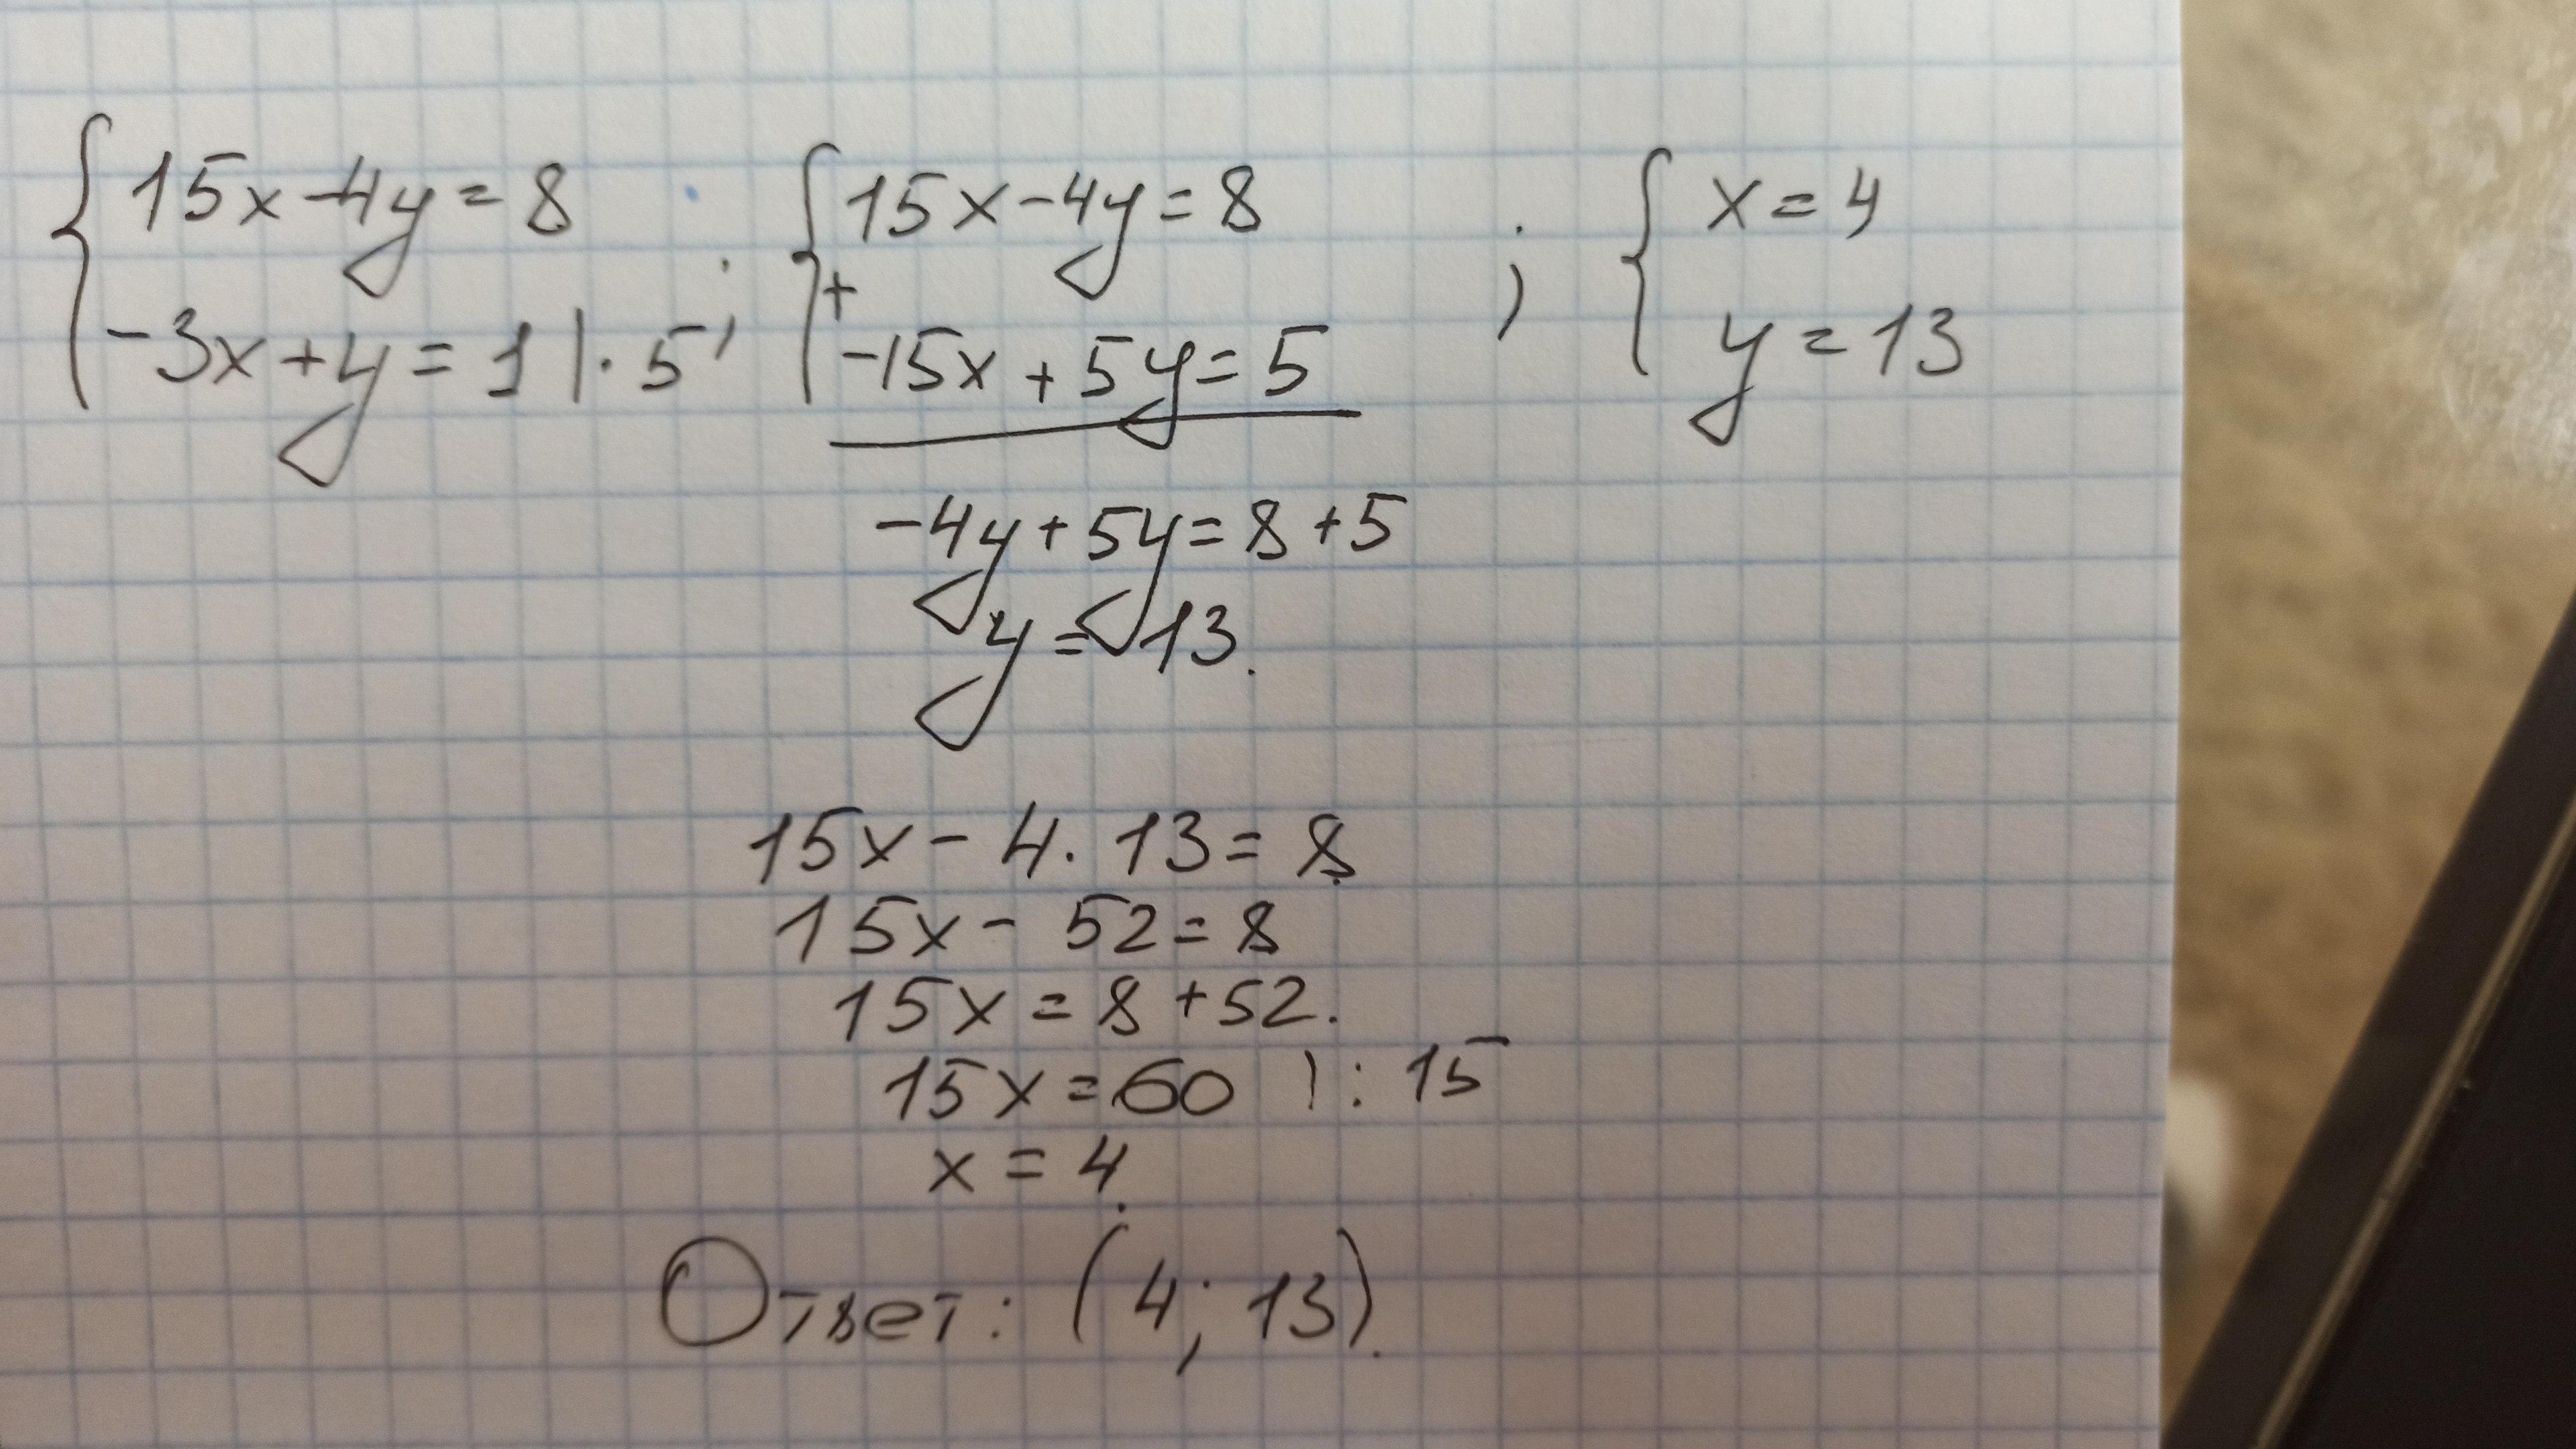 { 15x - 4y = 8 ; { 15x - 4y = 8 ; { x = 4
-3x + y = 1 | · 5 + -15x + 5y = 5 y = 13
-4y + 5y = 8 + 5
y = 13.
15x - 4 · 13 = 8
15x - 52 = 8
15x = 8 + 52.
15x = 60 | : 15
x = 4.
Ответ: (4; 13).